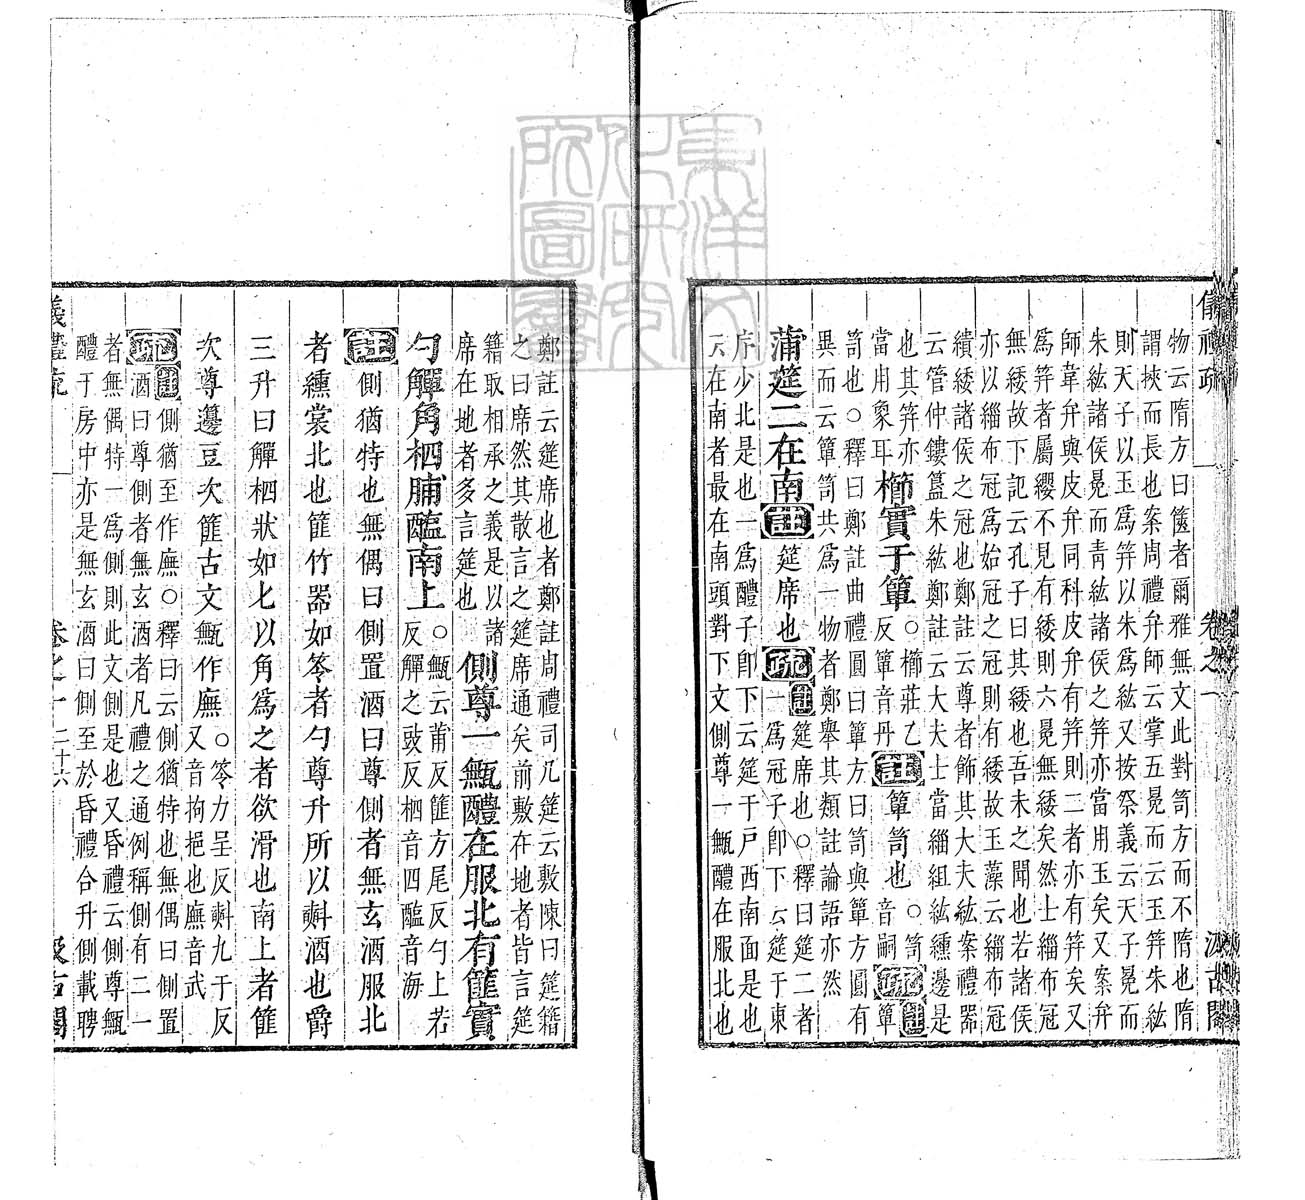 儀禮疏　卷之一　汲古閣
物云隋方曰篋者爾雅無文此對笥方而不隋也隋
謂挾而長也案周禮弁師云掌五冕而云玉笄朱紘
則天子以玉爲笄以朱爲紘又按祭義云天子冕而
朱紘諸侯冕而青紘諸侯之笄亦當用玉矣又案弁
師韋弁與皮弁同科皮弁有笄則二者亦有笄矣又
爲笄者屬纓不見有緌則六冕無緌矣然士緇布冠
無緌故下記云孔子曰其緌也吾未之聞也若諸侯
亦以緇布冠爲始冠之冠則有緌故玉藻云緇布冠
繢緌諸侯之冠也鄭註云尊者飾其大夫紘案禮器
云管仲鏤簋朱紘鄭註云大夫士當緇組紘纁邊是
也其笄亦
當用象耳
櫛實于簞
○櫛莊乙
反簞音丹
註
簞笥也
○笥
音嗣
疏
註簞
笥也○釋曰鄭註曲禮圓曰簞方曰笥與簞方圓有
異而云簞笥共爲一物者鄭舉其類註論語亦然
蒲筵二在南註筵席也疏
註筵席也○釋曰筵二者
一爲冠子卽下云筵于東
序少北是也一爲醴子卽下云筵于戶西南面是也
云在南者最在南頭對下文側尊一甒醴在服北也
鄭註云筵席也者鄭註周禮司几筵云敷陳曰筵籍
之曰席然其散言之筵席通矣前敷在地者皆言筵
籍取相承之義是以諸
席在地者多言筵也
側尊一甒醴在服北有篚實
勺觶角柶脯醢南上
○甒云莆反篚方尾反勺上若
反觶之豉反柶音四醢音海
註側猶特也無偶曰側置酒曰尊側者無玄酒服北
者纁裳北也篚竹器如笭者勺尊升所以㪺酒也爵
三升曰觶柶狀如匕以角爲之者欲滑也南上者篚
次尊籩豆次篚古文甒作廡
○笭力呈反㪺九于反
又音拘挹也廡音武
疏
註側猶至作廡○釋曰云側猶特也無偶曰側置
酒曰尊側者無玄酒者凡禮之通例稱側有二一
者無偶特一爲側則此文側是也又昏禮云側尊甒
醴于房中亦是無玄酒曰側至於昏禮合升側載聘
儀禮疏　卷之一　二十六　汲古閣
東洋文化研究所圖書